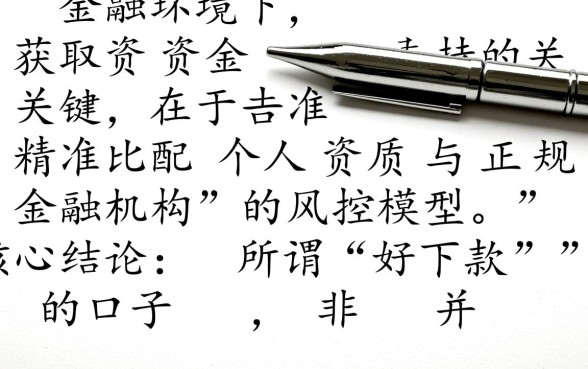 金融环境下，
获取资 资金 支持的关
关键，在于吉准
精准比配 个人资质与正规
金融机构”的风控模型。”
核心结论： 所谓“好下款””
的口子 ，非 并